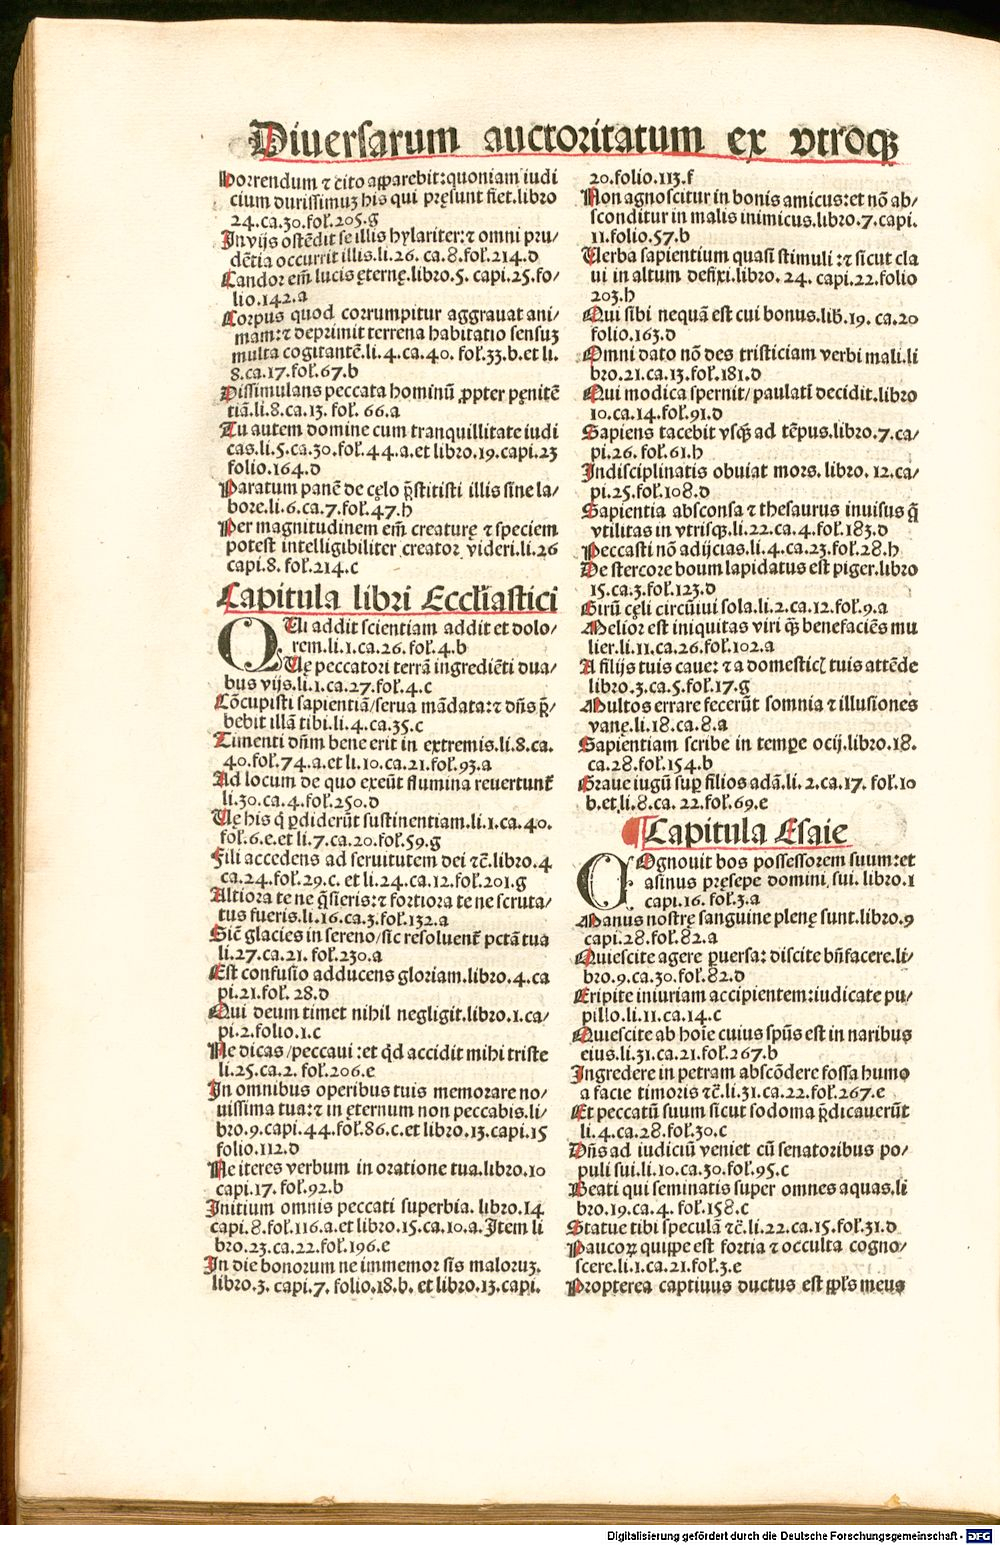 Diuersarum auctoritatum ex vtroqꝫ
Horrendum ⁊ cito apparebit:quoniam iudi
cium durissimuꝫ his qui pręsunt fiet.libro
24.ca.30.fol.205.g
In vijs ostēdit se illis hylariter:⁊ omni pru/
dētia occurrit illis.li.26. ca.8.fol.214.d
Candor em̄ lucis ęternę.libro.5. capi.25.fo/
lio.142.a
Corpus quod corrumpitur aggrauat ani/
mam:⁊ deprimit terrena habitatio sensuꝫ
multa cogitantē.li.4.ca.40. fol.33.b.et li.
8.ca.17.fol.67.b
Dissimulans peccata hominū ꝓpter pęnitē
tiā.li.8.ca.13. fol. 66.a
Tu autem domine cum tranquillitate iudi
cas.li.5.ca.30.fol.44.a.et libro.19.capi.23
folio.164.d
Paratum panē de cęlo p̄stitisti illis sine la/
bore.li.6.ca.7.fol.47.h
Per magnitudinem em̄ creaturę ⁊ speciem
potest intelligibiliter creator videri.li.26
capi.8. fol.214.c
Capitula libri Eccl'iastici
QUi addit scientiam addit et dolo/
rem.li.1.ca.26.fol.4.b
Uę peccatori terrā ingrediēti dua/
bus vijs.li.1.ca.27.fol.4.c
Cōcupisti sapientiā/serua mādata:⁊ dn̄s p̄/
bebit illā tibi.li.4.ca.35.c
Timenti dn̄m bene erit in extremis.li.8.ca.
40.fol.74.a.et li.10.ca.21.fol.93.a
Ad locum de quo exeūt flumina reuertunt᷑
li.30.ca.4.fol.250.d
Uę his q̇ ꝑdiderūt sustinentiam.li.1.ca.40.
fol.6.e.et li.7.ca.20.fol.59.g
Fili accedens ad seruitutem dei ⁊c̄.libro.4
ca.24.fol.29.c. et li.24.ca.12.fol.201.g
Altiora te ne q̄sieris:⁊ fortiora te ne scruta/
tus fueris.li.16.ca.3.fol.132.a
Sic̄ glacies in sereno/sic resoluent᷑ pctā tua
li.27.ca.21. fol.230.a
Est confusio adducens gloriam.libro.4.ca
pi.21.fol. 28.d
Qui deum timet nihil negligit.libro.1.ca/
pi.2.folio.1.c
Ne dicas/peccaui:et qd̄ accidit mihi triste
li.25.ca.2. fol.206.e
In omnibus operibus tuis memorare no/
uissima tua:⁊ in ęternum non peccabis.li/
bro.9.capi.44.fol.86.c.et libro.13.capi.15
folio.112.d
Ne iteres verbum in oratione tua.libro.10
capi.17. fol.92.b
Initium omnis peccati superbia. libro.14
capi.8.fol.116.a.et libro.15.ca.10.a.Item li
bro.23.ca.22.fol.196.e
In die bonorum ne immemor sis maloruꝫ.
libro.3. capi.7. folio.18.b. et libro.13.capi.
20.folio.113.f
Non agnoscitur in bonis amicus:et nō ab/
sconditur in malis inimicus.libro.7.capi.
11.folio.57.b
Uerba sapientium quasi stimuli:⁊ sicut cla
ui in altum defixi.libro. 24. capi.22.folio
203.h
Qui sibi nequā est cui bonus.lib.19. ca.20
folio.163.d
Omni dato nō des tristiciam verbi mali.li
bro.21.ca.13.fol.181.d
Qui modica spernit/paulatī decidit.libro
10.ca.14.fol.91.d
Sapiens tacebit vsqꝫ ad tēpus.libro.7.ca/
pi.26. fol.61.h
Indisciplinatis obuiat mors. libro. 12.ca/
pi.25.fol.108.d
Sapientia absconsa ⁊ thesaurus inuisus q̄
vtilitas in vtrisqꝫ.li.22.ca.4.fol.183.d
Peccasti nō adijcias.li.4.ca.23.fol.28.h
De stercore boum lapidatus est piger.libro
15.ca.3.fol.123.d
Girū cęli circūiui sola.li.2.ca.12.fol.9.a
Melior est iniquitas viri qꝫ̄ benefaciēs mu
lier.li.11.ca.26.fol.102.a
A filijs tuis caue:⁊ a domesticꝭ tuis attēde
libro.3.ca.5.fol.17.g
Multos errare fecerūt somnia ⁊ illusiones
vanę.li.18.ca.8.a
Sapientiam scribe in tempe ocij.libro.18.
ca.28.fol.154.b
Graue iugū suꝑ filios adā.li. 2.ca.17. fol.10
b.et li.8.ca. 22.fol.69.e
Capitula Esaie
COgnouit bos possessorem suum:et
asinus pręsepe domini sui. libro.1
capi.16. fol.3.a
Manus nostrę sanguine plenę sunt.libro.9
capi.28.fol.82.a
Quiescite agere ꝑuersa: discite bn̄facere.li/
bro.9.ca.30.fol.82.d
Eripite iniuriam accipientem:iudicate pu/
pillo.li.11.ca.14.c
Quiescite ab hoīe cuius spūs est in naribus
eius.li.31.ca.21.fol.267.b
Ingredere in petram abscōdere fossa humo
a facie timoris ⁊c̄.li.31.ca.22.fol.267.e
Et peccatū suum sicut sodoma p̄dicauerūt
li.4.ca.28.fol.30.c
Dn̄s ad iudiciū veniet cū senatoribus po/
puli sui.li.10.ca.30.fol.95.c
Beati qui seminatis super omnes aquas.li
bro.19.ca.4. fol.158.c
Statue tibi speculā ⁊c̄.li.22.ca.15.fol.31.d
Paucoꝝ quippe est fortia ⁊ occulta cogno/
scere.li.1.ca.21.fol.3.e
Propterea captiuus ductus est ppl's meus
Digitalisierung gefördert durch die Deutsche Forschungsgemeinschaft - DFG